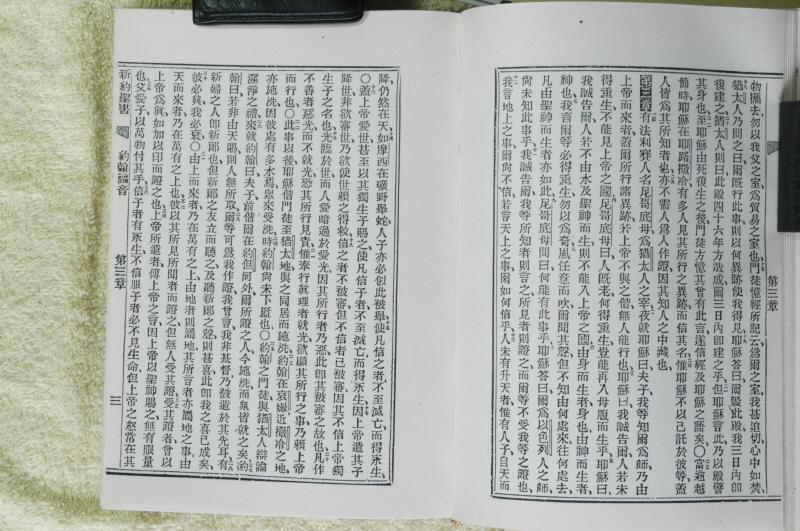 第三章
物攜去、勿以我父之室、爲貿易之室也、門徒憶經所記云、爲爾之室、我甚迫切、心中如焚、
猶太人乃問之曰、爾既行此事、則以何異跡使我得見、耶穌答曰、爾毀此殿、我三日內卽
復建之、猶太人則曰、此殿四十六年方造成、爾三日內卽建之乎、但耶穌言此、乃以殿譬
其身也、至耶穌由死復生之後、門徒方憶其曾有此言、遂信經及耶穌之語矣、○當逾越
節時、耶穌在耶路撒冷、有多人見其所行之異跡、而信其名、惟耶穌不以己託於彼等、蓋
人皆爲其所知者也、亦不需人爲人作證、因其知人之中藏也、
第三章有法利賽人、名尼哥底母、爲猶太人之宰、夜就耶穌曰、夫子、我等知爾爲師、乃由
上帝而來者、蓋爾所行諸異跡、若上帝不與之偕、無人能行也、耶穌曰、我誠告爾、人若未
得重生、不能見上帝之國、尼哥底母曰、人既老、何得重生、豈能再入母腹而生乎、耶穌曰、
我誠告爾、人若不由水及聖神而生、則不能入上帝之國、由身而生者身也、由神而生者
神也、我言爾等必得重生、勿以爲奇、風任意而吹、爾聞其聲、但不知由何處來、往何處去、
凡由聖神而生者亦如此、尼哥底母問曰、何能有此事乎、耶穌答曰、爾爲以色列人之師、
尚未知此事乎、我誠告爾、我等所知者則言之、所見者則證之、而爾等不受我等之證也、
我言地上之事、爾尚不信、若言天上之事、爾如何信乎、人未有升天者、惟有人子自天而
降、仍然在天、如摩西在曠野舉蛇、人子亦必似此被舉、使凡信之者、不至滅亡、而得永生、
○蓋上帝愛世、甚至以其獨生子賜之、使凡信子者、不至滅亡、而得永生、因上帝遣其子
降世、非欲審世、乃欲使世賴之得救、信之者不被審、但不信者已被審、因其不信上帝獨
生子之名也、光臨於世、而人愛暗過於愛光、因其所行者乃惡、此卽其被審之故也、凡作
不善者惡光、而不就光、恐其所行見責、惟奉行眞理者就光、欲顯其所行之事、乃賴上帝
而行也、○此事以後、耶穌偕門徒至猶太地、與之同居、而施洗、約翰在哀嫩近撒冷之地、
亦施洗、因彼處有多水焉、眾來受洗、時約翰尚未下獄也、○約翰之門徒與猶太人辯論
潔淨之禮、來就約翰曰、夫子、前偕爾在約但河外、爾所證之人、今施洗而眾皆就之矣、約
翰曰、若非由天賜、則人無所取、爾等可爲我作證、我曾言、我非基督、乃被遣於其先耳、有
新婦之人、卽新郎也、但新郎之友、立而聽之、及聽新郎之聲、則甚喜、此卽我之喜已成矣、
彼必興、我必衰、○由上而來者、乃在萬有之上也、由地者則屬地、其所言者亦屬地之事、由
天而來者、乃在萬有之上也、彼以其所見所聞者而證之、但無人受其證、受其證者、曾以
上帝爲眞、如加以印而證之也、上帝所遣者、傳上帝之言、因上帝以聖神賜之、無有限量
也、父愛子、以萬物付其手、信子者有永生、不信服子者、必不見生命、但上帝之怒常在其
新約聖書 約翰福音 第三章 三